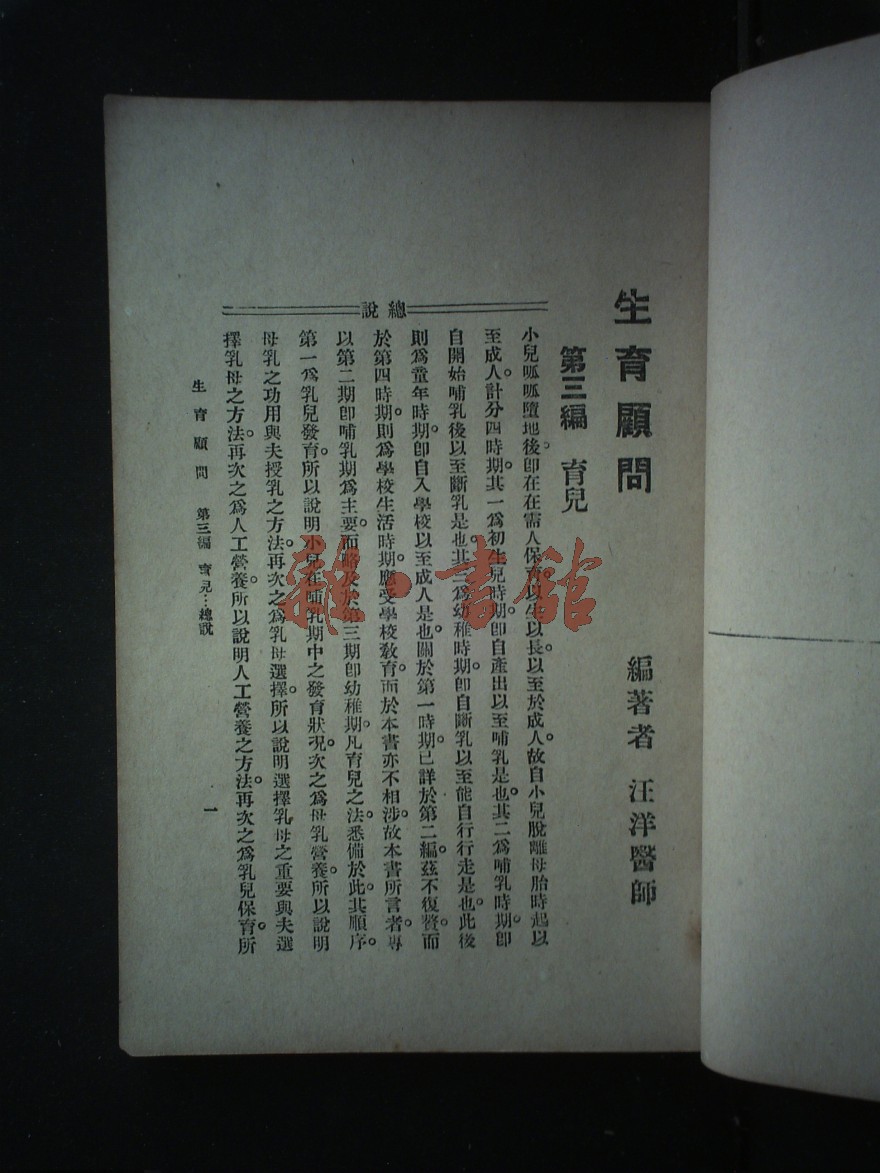 生育顧問
編著者 汪洋醫師
第三編 育兒
總說
小兒呱呱墮地後。卽在在需人保育以生以長。以至於成人。故自小兒脫離母胎時起以
至成人。計分四時期。其一爲初生兒時期。卽自產出以至哺乳是也。其二爲哺乳時期。卽
自開始哺乳後以至斷乳是也。其三爲幼稚時期。卽自斷乳以至能自行行走是也。此後
則爲童年時期。卽自入學校以至成人是也。關於第一時期。已詳於第二編。茲不復贅。而
於第四時期。則爲學校生活時期。應受學校敎育。而於本書亦不相涉。故本書所言者。專
以第二期卽哺乳期爲主要。而略及於第三期卽幼稚期。凡育兒之法。悉備於此。其順序。
第一爲乳兒發育。所以說明小兒在哺乳期中之發育狀況。次之爲母乳營養。所以說明
母乳之功用與夫授乳之方法。再次之爲乳母選擇。所以說明選擇乳母之重要與夫選
擇乳母之方法。再次之爲人工營養。所以說明人工營養之方法。再次之爲乳兒保育。所
生育顧問 第三編 育兒…總說
一
雜·書館